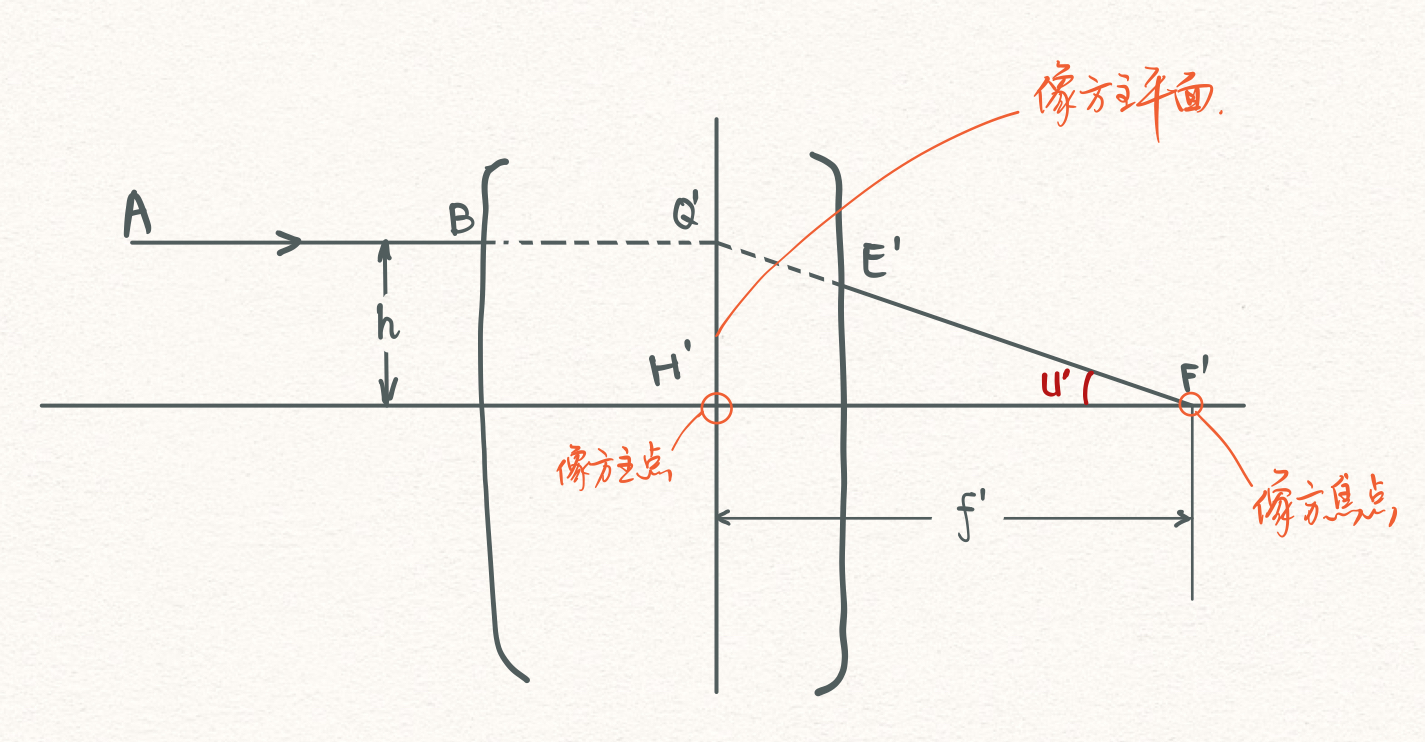 像方主平面.
A
B
Q'
E'
h
H'
u'
F'
像方主点
像方焦点
f'